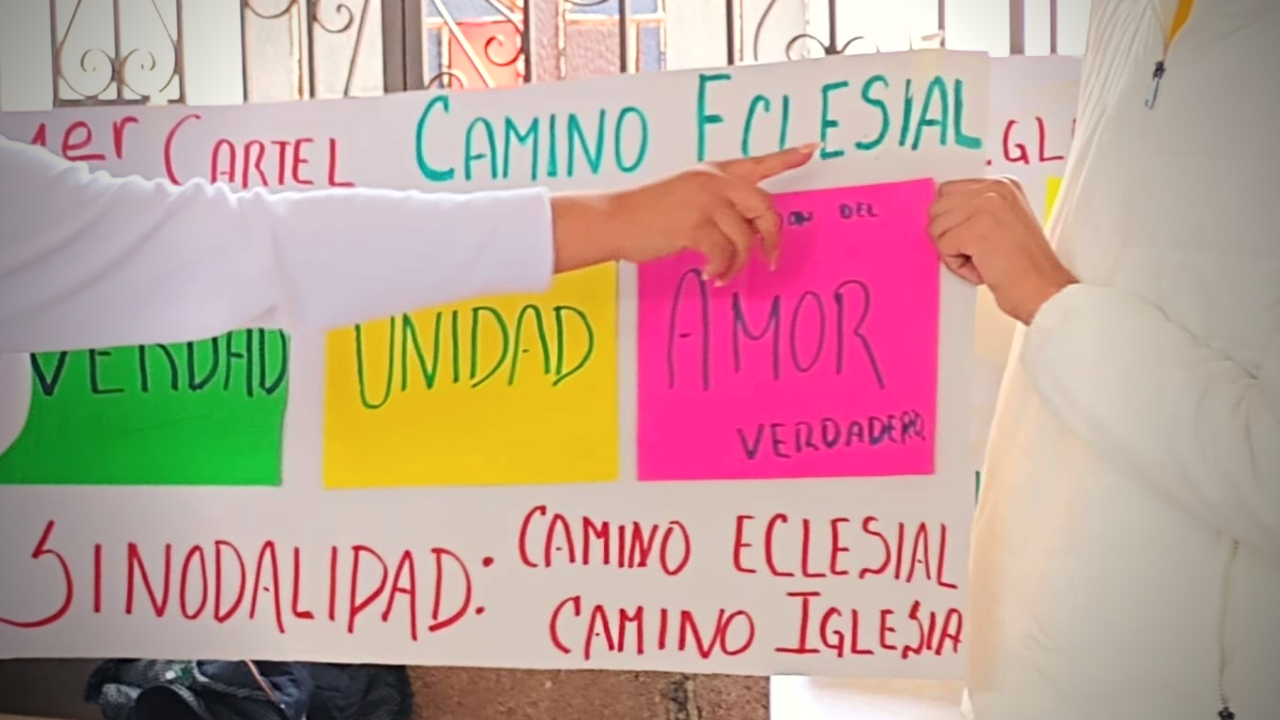 CARTEL CAMINO ECLESIAL
DEL
VERDAD UNIDAD AMOR
VERDADERO
SINODALIDAD: CAMINO ECLESIAL
CAMINO IGLESIA